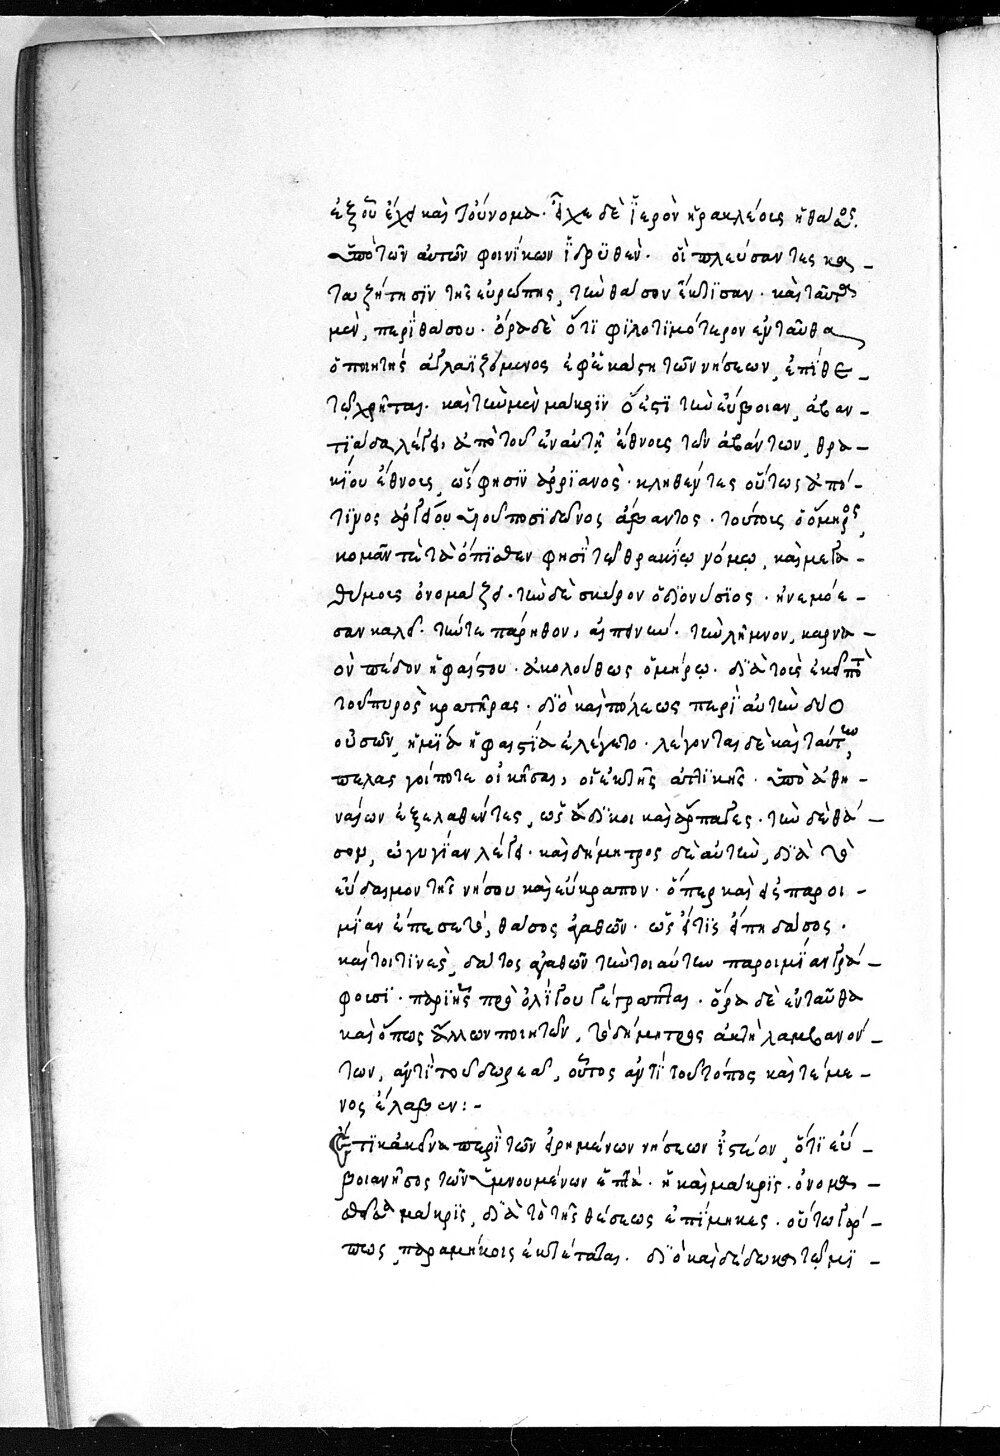 ἐξ οὗ ἔχει καὶ τοὔνομα. εἶχε δὲ ἱερὸν ἡρακλέους ἡ θάσος.
ὑπὸ τῶν αὐτῶν φοινίκων ἱδρυθέν. οἱ πλεύσαντες κα_
τὰ ζήτησιν τῆς εὐρώπης, τὴν θάσον ἔκτισαν. καὶ ταῦτα
μὲν, περὶ θάσου. ὅρα δὲ ὅτι φιλοτιμότερον ἐνταῦθα
ὁ ποιητὴς ἀγλαϊζόμενος ἐφ' ἑκάστη τῶν νήσων, ἐπιθέ_
τω χρῆται. καὶ τὴν μὲν μάκριν ὅ ἐστι τὴν εὔβοιαν, ἀβαν_
τιάδα λέγει, ἀπὸ τοῦ ἐν αὐτῇ ἔθνους τῶν ἀβάντων, θρα_
κίου ἔθνους, ὥς φησιν ἀρριανὸς. κληθέντες οὕτως ἀπό_
τινος ἀρ υἱοῦ ποσειδῶνος ἄβαντος. τούτους ὁ ὅμηρος,
κομᾶν τὰ ὄπισθεν φησὶ τῶ θρακίῳ νόμῳ, καὶ μεγα_
θύμους ὀνομάζει. τὴν δὲ σκύρον ὁ διονύσιος. ἠνεμόε_
σαν καλεῖ. τήν τε πάρηθον, αἰπεινήν. τὴν λῆμνον, καρνα_
ὸν πέδον ἡφαίστου. ἀκολούθως ὁμήρῳ. διὰ τοὺς ἐκεῖ ποτὲ
τοῦ πυρὸς κρατῆρας. διὸ καὶ πόλεως περὶ αὐτὴν δύο
οὐσῶν, ἡ μία ἡφαιστία ἐλέγετο. λέγονται δὲ καὶ ταύτην
πελασγοί ποτε οἰκῆσαι, οἱ ἐκ τῆς ἀττικῆς. ὑπὸ ἀθη_
ναίων ἐξελαθέντες, ὡς ἄδικοι καὶ ἅρπαγες. τὴν δὲ θά_
σον, ὠγυγίαν λέγει. καὶ δήμητρος δὲ αὐτὴν, διὰ τὸ
εὔδαιμον τῆς νήσου καὶ εὔκραπον. ὅπερ καὶ εἰς παροι_
μίαν ἔπεσε τὸ, θάσος ἀγαθῶν. ὡς εἴ τις εἴπῃ δάσος.
καί τοι τινὲς, δάτος ἀγαθῶν τὴν τοιαύτην παροιμίαν γρά_
φουσι. περὶ ἧς πρὸ ὀλίγου γέγραπται. ὅρα δὲ ἐνταῦθα
καὶ ὅπως ἄλλων ποιητῶν, τὸ δήμητρος ἀκτὴ λαμβανόν_
των, ἀντὶ τοῦ δωρεαὶ, οὗτος ἀντὶ τοῦ τόπος καὶ τέμε_
νος ἔλαβεν:-
Ἔτι κἀκεῖνα περὶ τῶν εἰρημένων νήσων ἰστέον, ὅτι εὔ_
βοια νῆσος τῶν ὑμνουμένων ἑπτὰ. ἡ καὶ μάκρις. ὀνομα_
σθεῖσα μάκρις, διὰ τὸ τῆς θέσεως ἐπίμηκες. οὕτω γάρ_
πως, παραμήκους ἐκτέταται. διὸ καὶ δέδωκε τῷ μι_